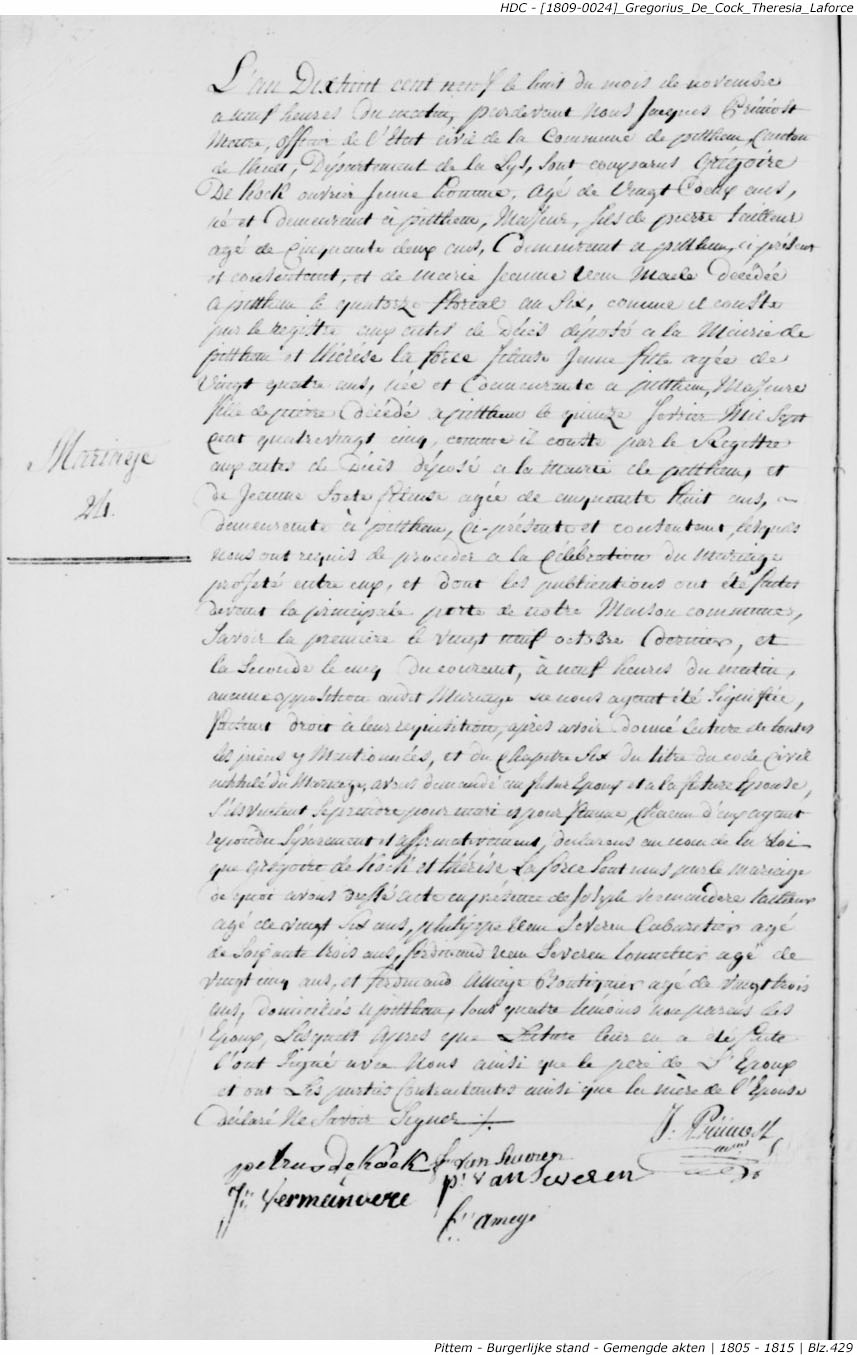 HDC - [1809-0024]_Gregorius_De_Cock_Theresia_Laforce
L'an Dixhuit cent neuf le huit du mois de novembre
a neuf heures du matin, pardevant nous Jacques Prévost
Maire, officier de l'Etat civil de la Commune de pitthem, Canton
de thielt, Département de la Lys, sont comparus Grégoire
De Kock ouvrier Jeune homme, agé de vingt Deux ans,
né et demeurant à pitthem, Majeur, fils de pierre tailleur
agé de Cinquante deux ans, Demeurant a pitthem, ci présent
et consentant, et de marie Jeanne van Maele Décédée
a pitthem le quatorze floréal an Six, comme il conste
par le registre aux actes de Décès déposé a la Mairie de
pitthem et thérèse la force fileuse Jeune fille agée de
vingt quatre ans, née et Demeurante a pitthem, Majeure
fille de pierre décédé a pitthem le quinze fevrier Mil Sept
Cent quatrevingt cinq, comme il conste par le Registre
aux actes de Décès déposé a la mairie de pitthem, et
Mariage
24.
de Jeanne fileuse agée de cinquante huit ans,
demeurante à pitthem, Ci-présente et consentant, lesquels
nous ont requis de proceder a la Célébration du Mariage
projeté entre eux, et dont les publications ont été faites
devant la principale porte de notre Maison commune,
Savoir la première le vingt neuf octobre Dernier, et
la Seconde le cinq Du courant, à neuf heures du matin,
aucune opposition audit Mariage ne nous ayant été Signifiée,
faisant droit à leur requisition, après avoir donné lecture de toutes
les pièces y Mentionnées, et du Chapitre Six du titre du code Civil
intitulé du Mariage, avons demandé au futur Epoux et a la future Epouse,
S'ils veulent Se prendre pour mari et pour femme, Chacun d'eux ayant
repondu Séparement et affirmativement, declarons au nom de la Loi
que Grégoire de Kock et thérèse La force Sont unis par le mariage
de quoi avons dressé acte en présence de Joseph vermandere tailleur
agé de vingt Six ans, philippe van Severen Cabaretier agé
de Soixante trois ans, ferdinand van Severen agé de
vingt cinq ans, et ferdinand Ameye Boutiquier agé de vingt trois
ans, domiciliés a pitthem, tout quatre témoins non parens des
Epoux, Lesquels Apres que Lecture leur en a été faite
l'ont Signé avec Nous ainsi que le pere de L'Epoux
et ont Les parties Contractantes ainsi que la mère de l'Epouse
déclaré Ne Savoir Signer
J: Prévost
petrus de kock f van Severen
p: van Severen
J: vermandere
f: ameye
Pittem - Burgerlijke stand - Gemengde akten | 1805 - 1815 | Blz.429